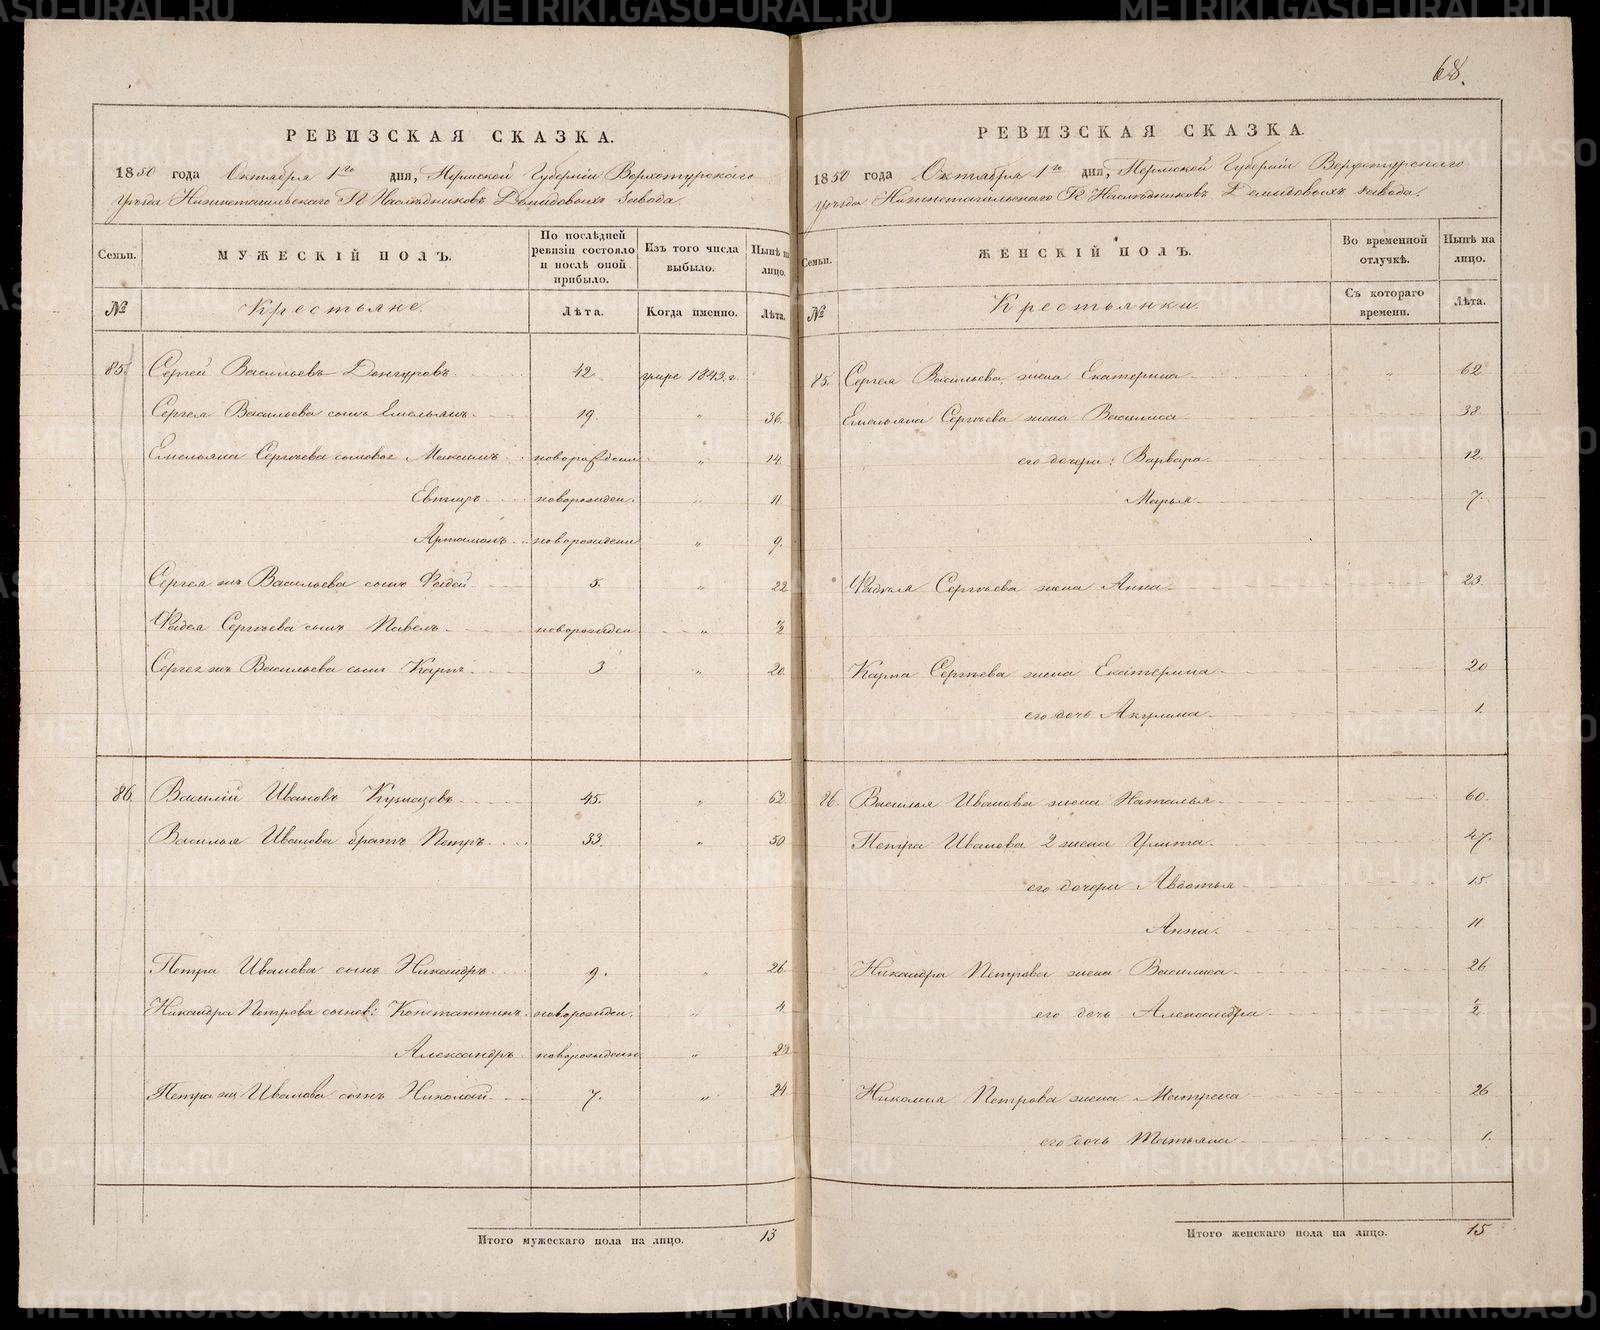 68.
РЕВИЗСКАЯ СКАЗКА.
1850 года Октября 1го дня, Пермской Губернiи Верхотурскаго
уѣзда Нижнетагильскаго Гг Наслѣдниковъ Демидовыхъ завода.
Семьи.
МУЖЕСКІЙ ПОЛЪ.
По послѣдней ревизіи состояло и послѣ оной прибыло.
Изъ того числа выбыло.
Нынѣ на лицо.
№
Крестьяне.
Лѣта.
Когда именно.
Лѣта.
85. Сергей Васильевъ 42. умре 1843 г.
Сергея Васильева сынъ Емельянъ. 19. " 36.
Емельяна Сергѣева сыновья Максимъ новорожден " 14
новорожден. " 11
Артамонъ новорожден " 9.
Сергея жъ Васильева сынъ Фадей 5. " 22
Фадея Сергѣева сынъ Павелъ новорожден " ½
Сергея жъ Васильева сынъ Карпъ 3 " 20.
86. Василій Ивановъ 45. " 62
Василья Иванова братъ Петръ. 33. " 50
Петра Иванова сынъ Никандръ 9. " 26
Никандра Петрова сынов: Константинъ новорожден. " 4
Александръ новорожден " 2½
Петра жъ Иванова сынъ Николай 7. " 24
Итого мужескаго пола на лицо. 13
РЕВИЗСКАЯ СКАЗКА.
1850 года Октября 1го дня, Пермской Губернiи Верхотурскаго
уѣзда Нижнетагильскаго Гг Наслѣдниковъ Демидовыхъ завода.
Семьи.
ЖЕНСКІЙ ПОЛЪ.
Во временной отлучкѣ.
Нынѣ на лицо.
№
Крестьянки.
Съ котораго времени.
Лѣта.
85. Сергея Васильева жена Екатерина " 62
Емельяна Сергѣева жена Василиса 38.
его дочери: Варвара 12.
Марья 7.
Фадея Сергѣева жена Анна 23.
Карпа Сергѣева жена Екатерина 20
его дочь Акулина 1.
86. Василья Иванова жена Наталья 60.
Петра Иванова 2 жена Улита 47.
его дочери Авдотья 15.
Анна. 11
Никандра Петрова жена Василиса 26
его дочь Александра ½
Николая Петрова жена Матрена 26
его дочь Татьяна 1.
Итого женскаго пола на лицо. 15
METRIKI.GASO-URAL.RU